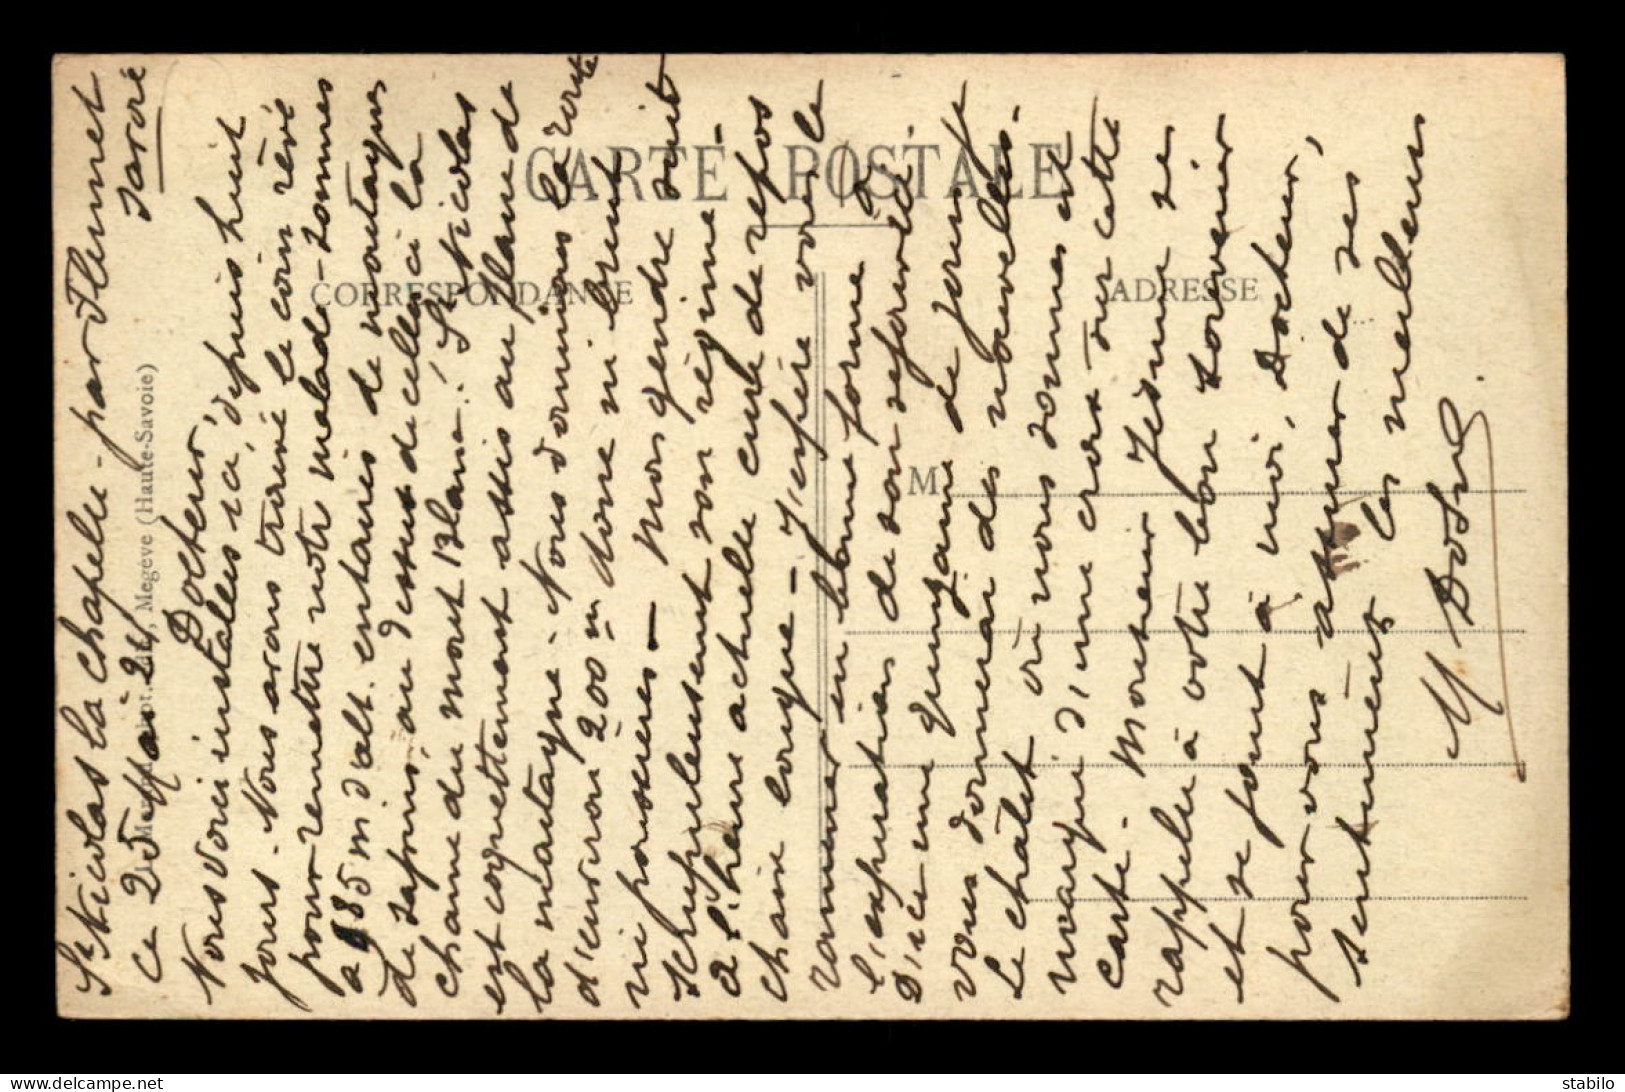 CARTE POSTALE
CORRESPONDANCE
ADRESSE
M
Megève (Haute-Savoie)
St Nicolas la Chapelle - par Flumet
ce 25 Mai 24, Savoie
Docteur,
Nous voici installés ici, depuis huit
jours. Nous avons trouvé le coin rêvé
pour remettre notre malade - sommes
à 985 m d'alt. entourés de montagnes
de sapins, au dessus de celles ci la
chaine du Mont Blanc! St Nicolas
est coquettement assis au flanc de
la montagne. Nous dominons la route
d'environ 200 m donc ni bruit
ni poussières - Mon gendre suit
scrupuleusement son régime -
à l'heure actuelle cure de repos
chaise longue - J'espère vous le
ramener en bonne forme à
l'expiration de son séjour ici.
D'ici une quinzaine de jours je
vous donnerai des nouvelles.
Le châlet où nous sommes est
marqué d'une croix sur cette
carte. Monsieur Jésume se
rappelle à votre bon souvenir
et se joint à moi, Docteur,
pour vous assurer de ses
sentiments les meilleurs